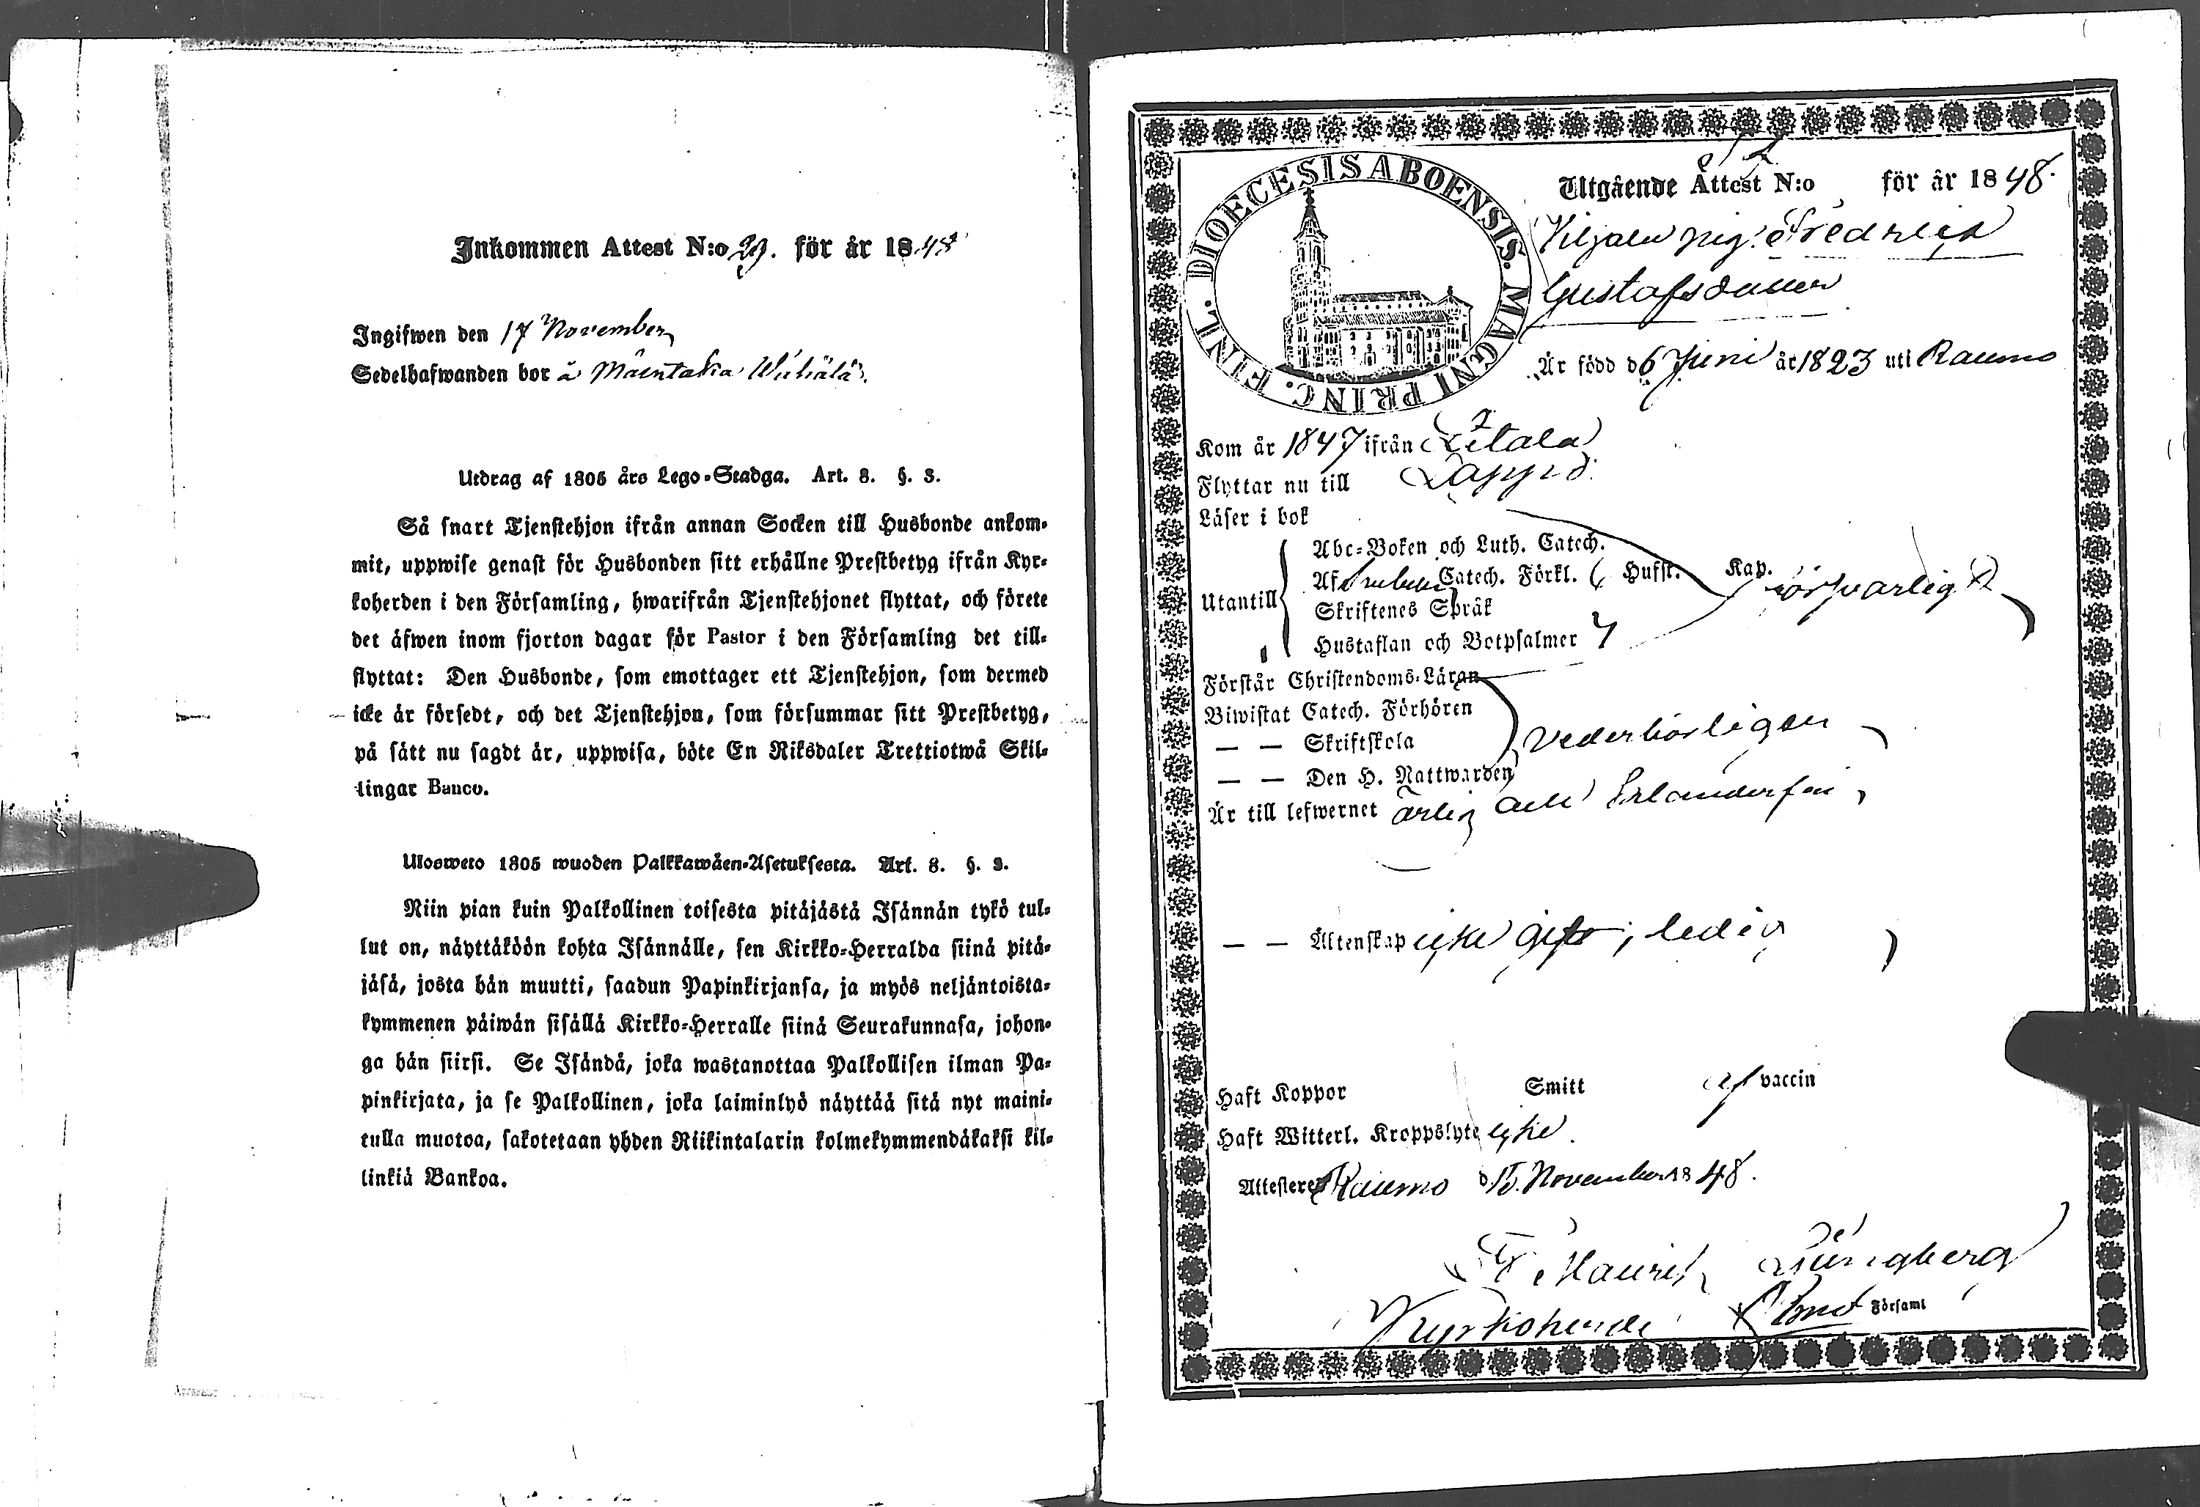 Inkommen Attest N:o 29. för år 1848
Ingifwen den 17 November
Sedelhafwanden bor å Mäentaka
Utdrag af 1805 års Lego-Stadga. Art. 8. §. 3.
Så snart Tjenstehjon ifrån annan Socken till Husbonde ankom-
mit, uppwise genast för Husbonden sitt erhållne Prestbetyg ifrån Kyr-
koherden i den Församling, hwarifrån Tjenstehjonet flyttat, och förete
det äfwen inom fjorton dagar för Pastor i den Församling det till-
flyttat: Den Husbonde, som emottager ett Tjenstehjon, som dermed
icke är försedt, och det Tjenstehjon, som försummar sitt Prestbetyg,
på sätt nu sagdt är, uppwisa, böte En Riksdaler Trettiotwå Skil-
lingar Banco.
Ulosweto 1805 wuoden Palkkawäen-Asetuksesta. Art. 8. §. 3.
Niin pian kuin Palkollinen toisesta pitäjästä Isännän tykö tul-
lut on, näyttäköön kohta Isännälle, sen Kirkko-Herralda siinä pitä-
jäsä, josta hän muutti, saadun Papinkirjansa, ja myös neljäntoista-
kymmenen päiwän sisällä Kirkko-Herralle siinä Seurakunnasa, johon-
ga hän siirsi. Se Isändä, joka wastanottaa Palkollisen ilman Pa-
pinkirjata, ja se Palkollinen, joka laiminlyö näyttää sitä nyt maini-
tulla muotoa, sakotetaan yhden Riikintalarin kolmekymmendäkaksi kil-
linkiä Bankoa.
FINL. DIOECESIS ABOENSIS. MAGNI PRINC.
Utgående Attest N:o för år 1848.
pig. Fredrica
Gustafsdotter
Är född d 6 Juni år 1823 uti Raumo
Kom år 1847 ifrån Letala
Flyttar nu till Lappo.
Läser i bok
Abc-Boken och Luth. Catech.
Af Catech. Förkl. Hufst. Kap.
Utantill
Skriftenes Språk försvarligt
Hustaflan och Botpsalmer
Förstår Christendoms-Läran
Biwistat Catech. Förhören
— — Skriftskola vederbörligen
— — Den H. Nattwarden
Är till lefwernet ärlig och
— — Äktenskap icke gift, ledig
Haft Koppor Smitt af vaccin
Haft Witterl. Kroppslyte icke.
Attesterer Raumo d 15. November 1848.
Fr. Mauritz Ljungberg
Kyrkoherde Församl